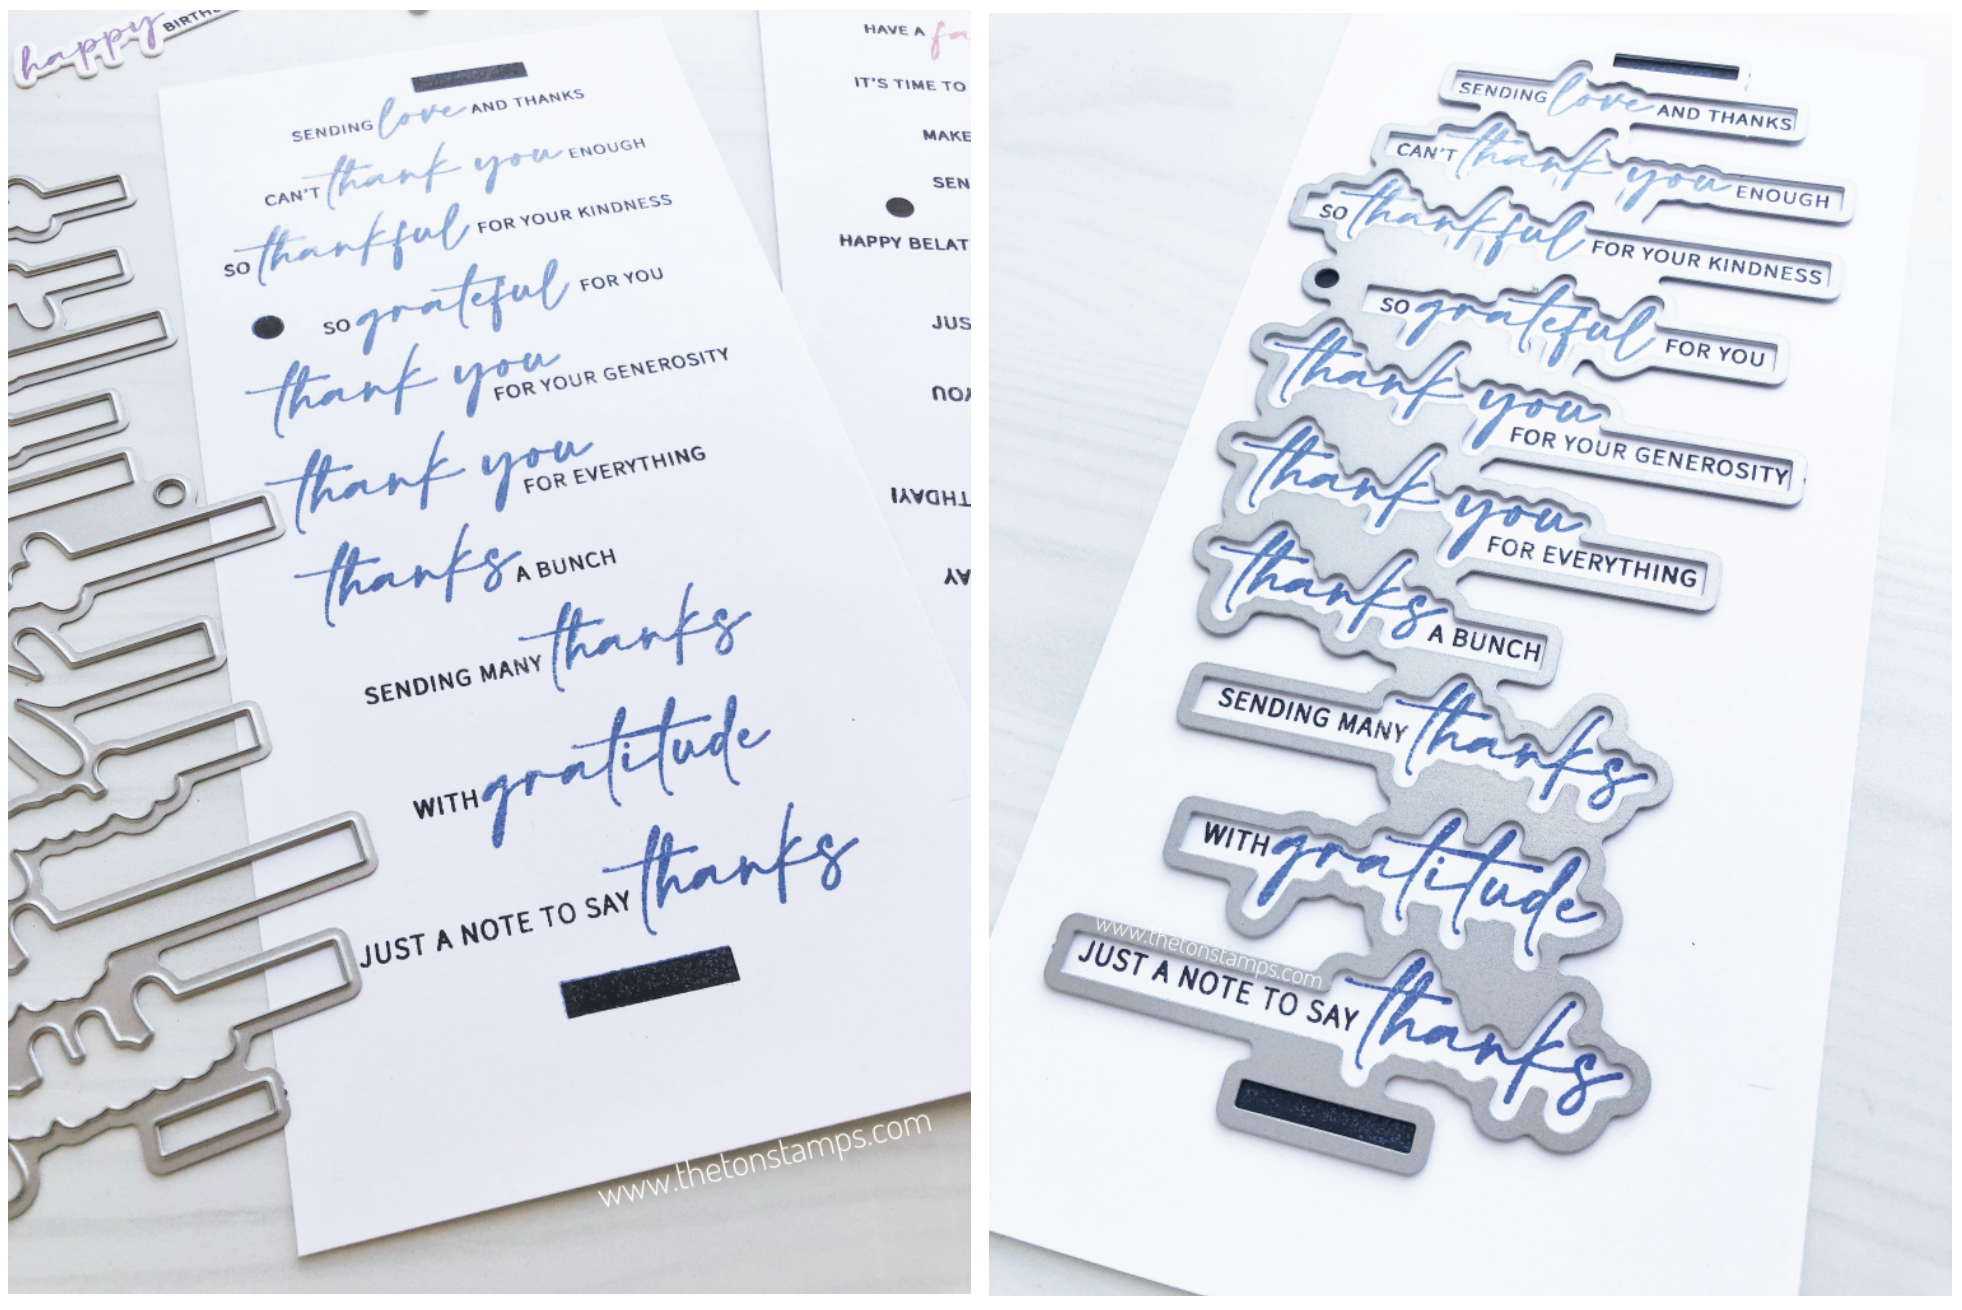 happy BIRTH
SENDING love AND THANKS
CAN'T thank you ENOUGH
SO thankful FOR YOUR KINDNESS
SO grateful FOR YOU
thank you FOR YOUR GENEROSITY
thank you FOR EVERYTHING
thanks A BUNCH
SENDING MANY thanks
WITH gratitude
JUST A NOTE TO SAY thanks
www.thetonstamps.com
HAVE A fa
IT'S TIME TO
MAKE
SEN
HAPPY BELAT
JUS
YOU
THDAY!
AY
SENDING love AND THANKS
CAN'T thank you ENOUGH
SO thankful FOR YOUR KINDNESS
SO grateful FOR YOU
thank you FOR YOUR GENEROSITY
thank you FOR EVERYTHING
thanks A BUNCH
SENDING MANY thanks
WITH gratitude
www.thetonstamps.com
JUST A NOTE TO SAY thanks